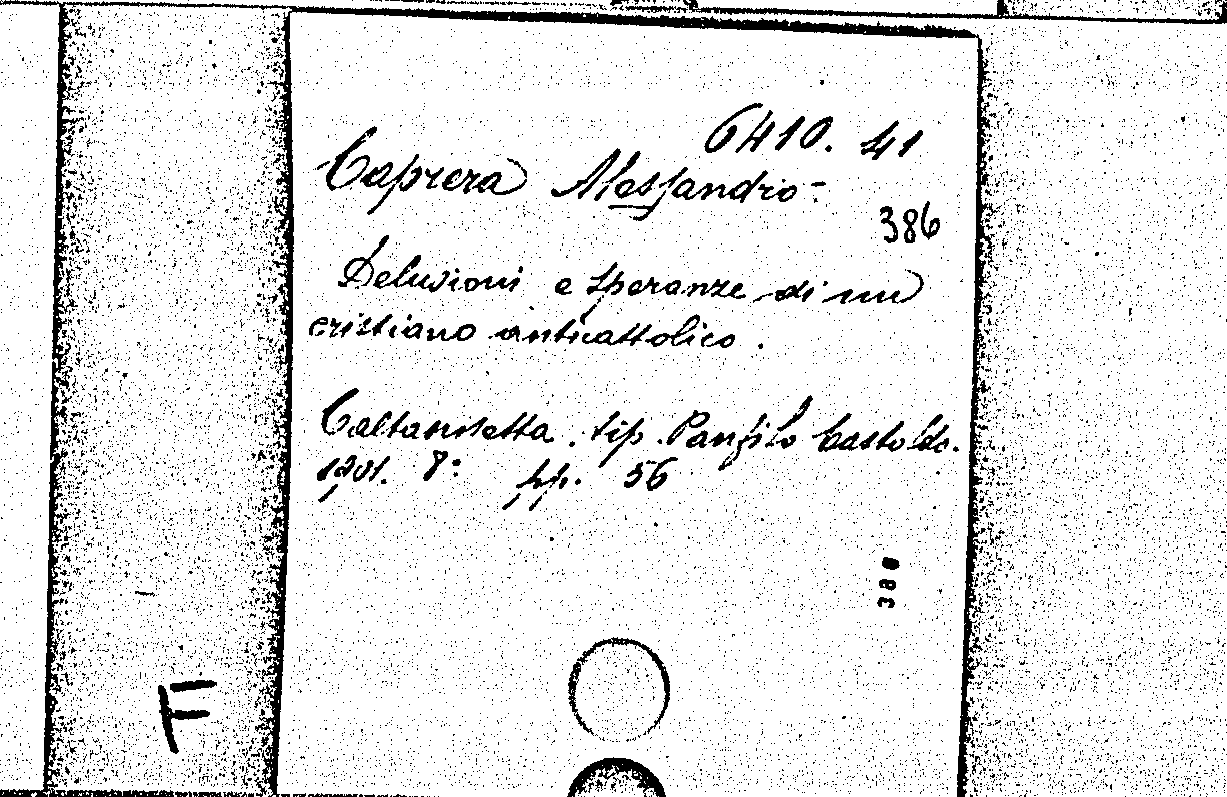 6410. 41
Caprera Alessandro -
386
Delusioni e speranze di un
cristiano anticattolico.
Caltanissetta. tip. Panfilo Castoldo.
1901. 8° pp. 56
380
F